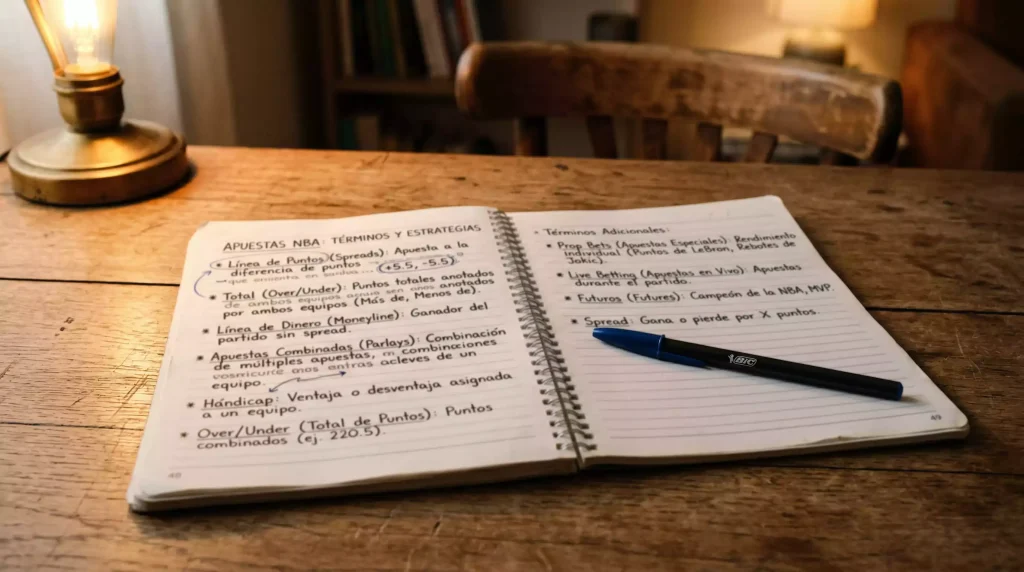 APUESTAS NBA: TÉRMINOS Y ESTRATEGIAS
• Línea de Puntos (Spreads): Apuesta a la
diferencia de puntos
(+5.5, -5.5)
• Total (Over/Under): Puntos totales anotados
por ambos equipos (Más de, Menos de).
• Línea de Dinero (Moneyline): Ganador del
partido sin spread.
• Apuestas Combinadas (Parlays): Combinación
de múltiples apuestas, combinaciones
de un
equipo.
• Hándicap: Ventaja o desventaja asignada
a un equipo.
• Over/Under (Total de Puntos): Puntos
combinados (ej. 220.5).
• Términos Adicionales:
• Prop Bets (Apuestas Especiales): Rendimiento
individual (Puntos de LeBron, Rebotes de
Jokic).
• Live Betting (Apuestas en Vivo): Apuestas
durante el partido.
• Futuros (Futures): Campeón de la NBA, MVP.
• Spread: Gana o pierde por X puntos.
BIC
49